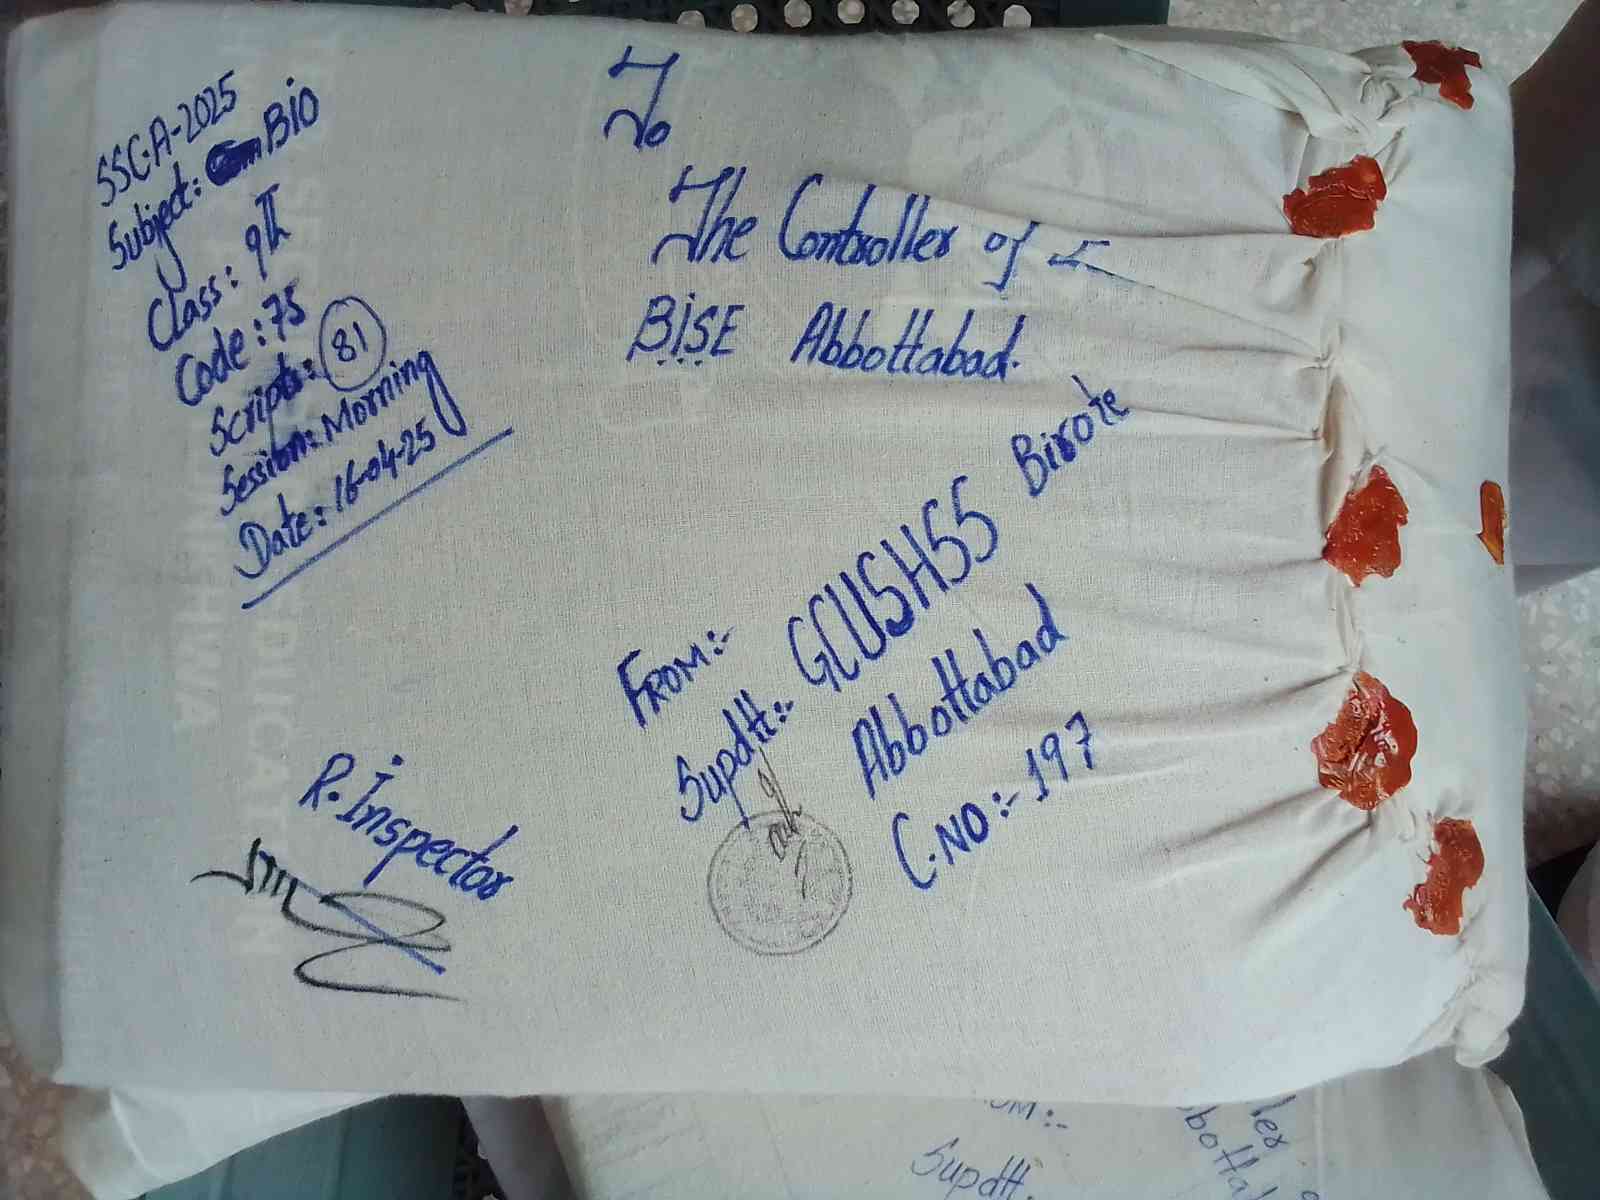 SSC-A-2025
Subject: Bio
Class: 9th
Code: 75
Scripts: 81
Session: Morning
Date: 16-04-25
To
The Controller of
BISE Abbottabad.
FROM:-
Supdtt:- GCUSHSS Birote
Abbottabad
C.NO:- 197
R. Inspector
Supdtt.